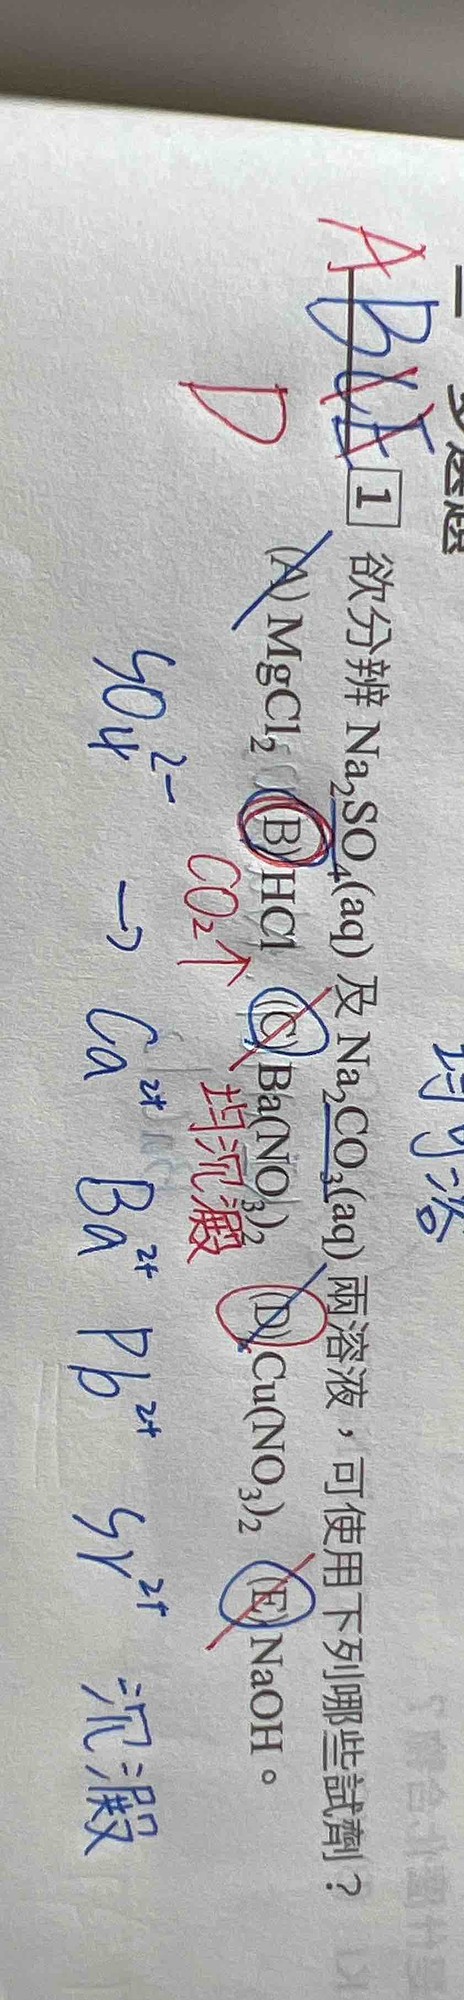 一 多選題
均可溶
ABCE 1 欲分辨 Na₂SO₄(aq) 及 Na₂CO₃(aq) 兩溶液，可使用下列哪些試劑？
D (A) MgCl₂ (B) HCl (C) Ba(NO₃)₂ (D) Cu(NO₃)₂ (E) NaOH。
CO₂↑ 均沉澱
SO₄²⁻ → Ca²⁺ Ba²⁺ Pb²⁺ Sr²⁺ 沉澱